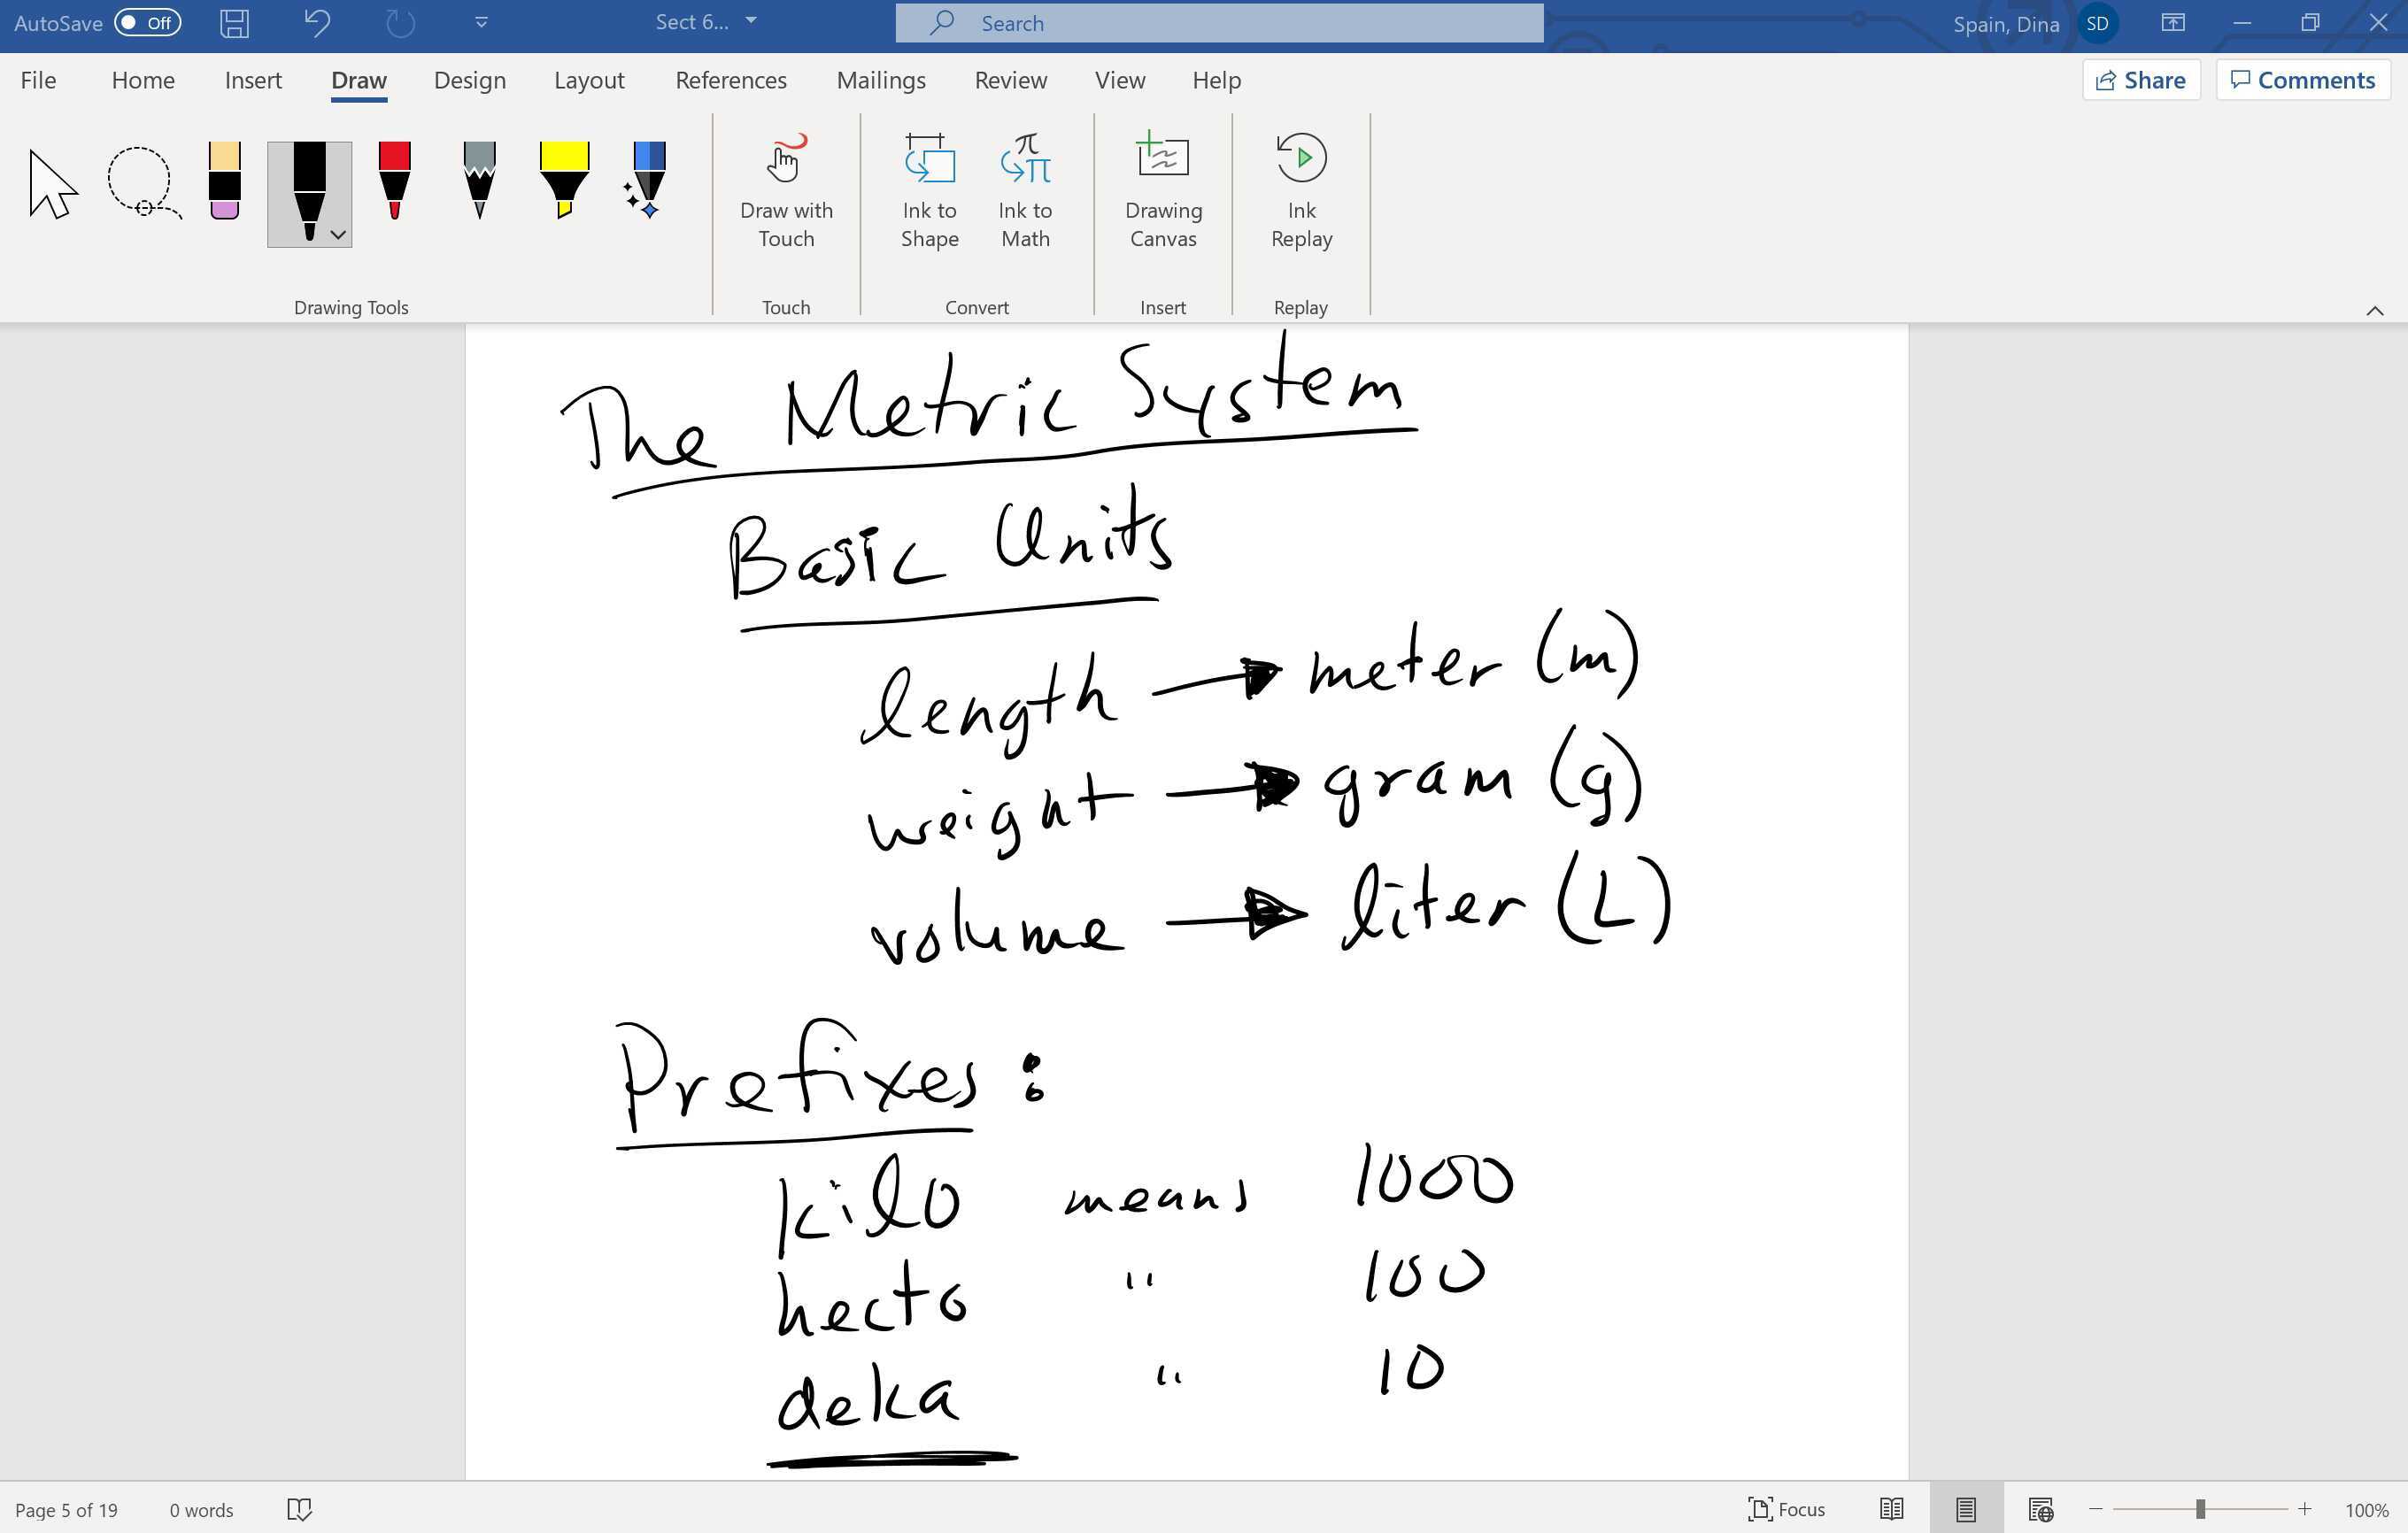 AutoSave Off Sect 6... Search Spain, Dina SD
File Home Insert Draw Design Layout References Mailings Review View Help Share Comments
Draw with Touch Ink to Shape Ink to Math Drawing Canvas Ink Replay
Drawing Tools Touch Convert Insert Replay
The Metric System
Basic Units
length → meter (m)
weight → gram (g)
volume → liter (L)
Prefixes:
kilo means 1000
hecto " 100
deka " 10
Page 5 of 19 0 words Focus 100%